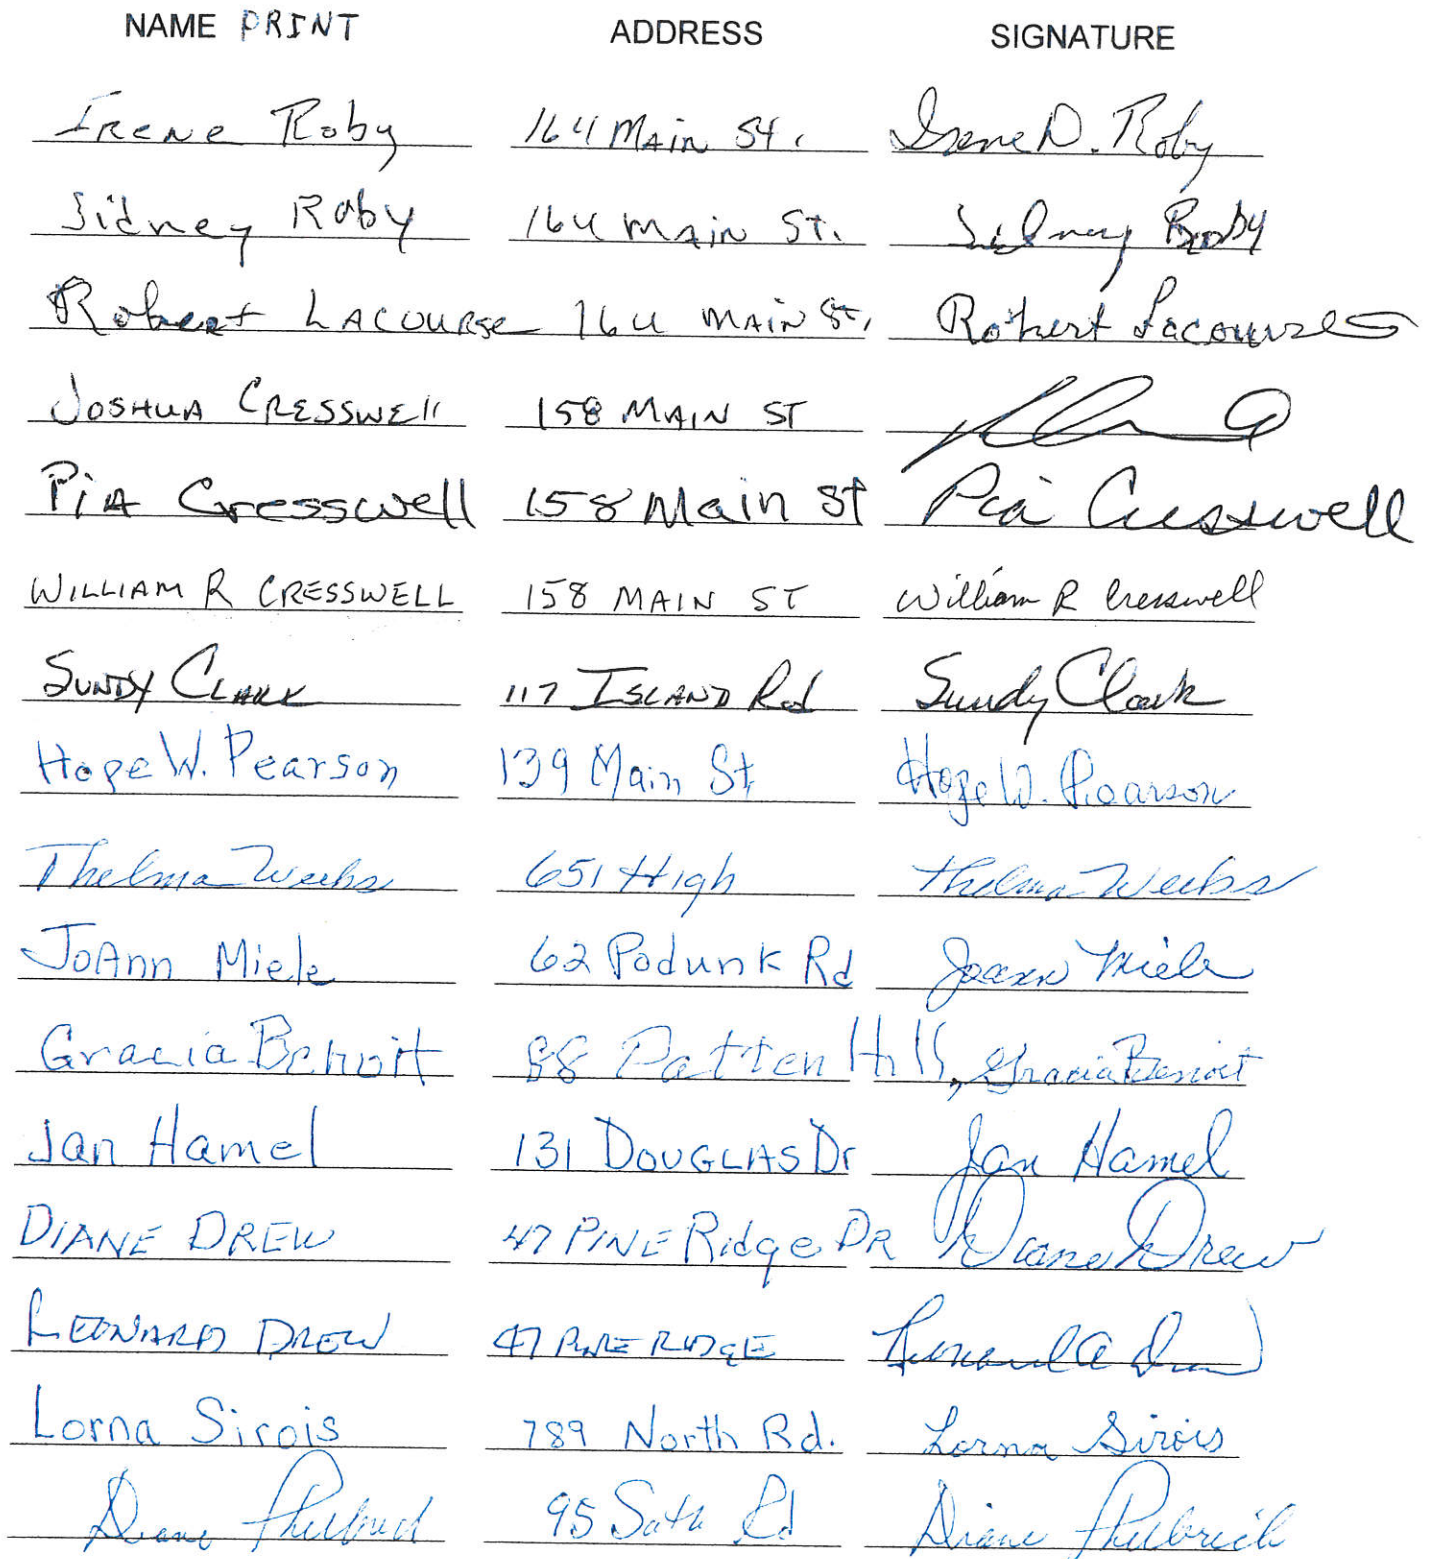 NAME PRINT ADDRESS SIGNATURE
Irene Roby 164 Main St. Irene D. Roby
Sidney Roby 164 Main St. Sidney Roby
Robert LACOURSE 164 MAIN St, Robert Lacourse
JOSHUA CRESSWEll 158 MAIN ST
PiA Cresswell 158 Main St Pia Cresswell
WILLIAM R CRESSWELL 158 MAIN ST William R Cresswell
SUNDY CLARK 117 ISLAND Rd Sundy Clark
Hope W. Pearson 139 Main St Hope W. Pearson
Thelma Weeks 651 High Thelma Weeks
JoAnn Miele 62 Podunk Rd Joann Miele
Gracia Benoit 88 Patten Hill, Gracia Benoit
Jan Hamel 131 DOUGLAS Dr Jan Hamel
DIANE DREW 47 PINE Ridge DR Diane Drew
LEONARD DREW 47 PINE RIDGE Leonard A Drew
Lorna Sirois 789 North Rd. Lorna Sirois
Diane 95 Rd Diane